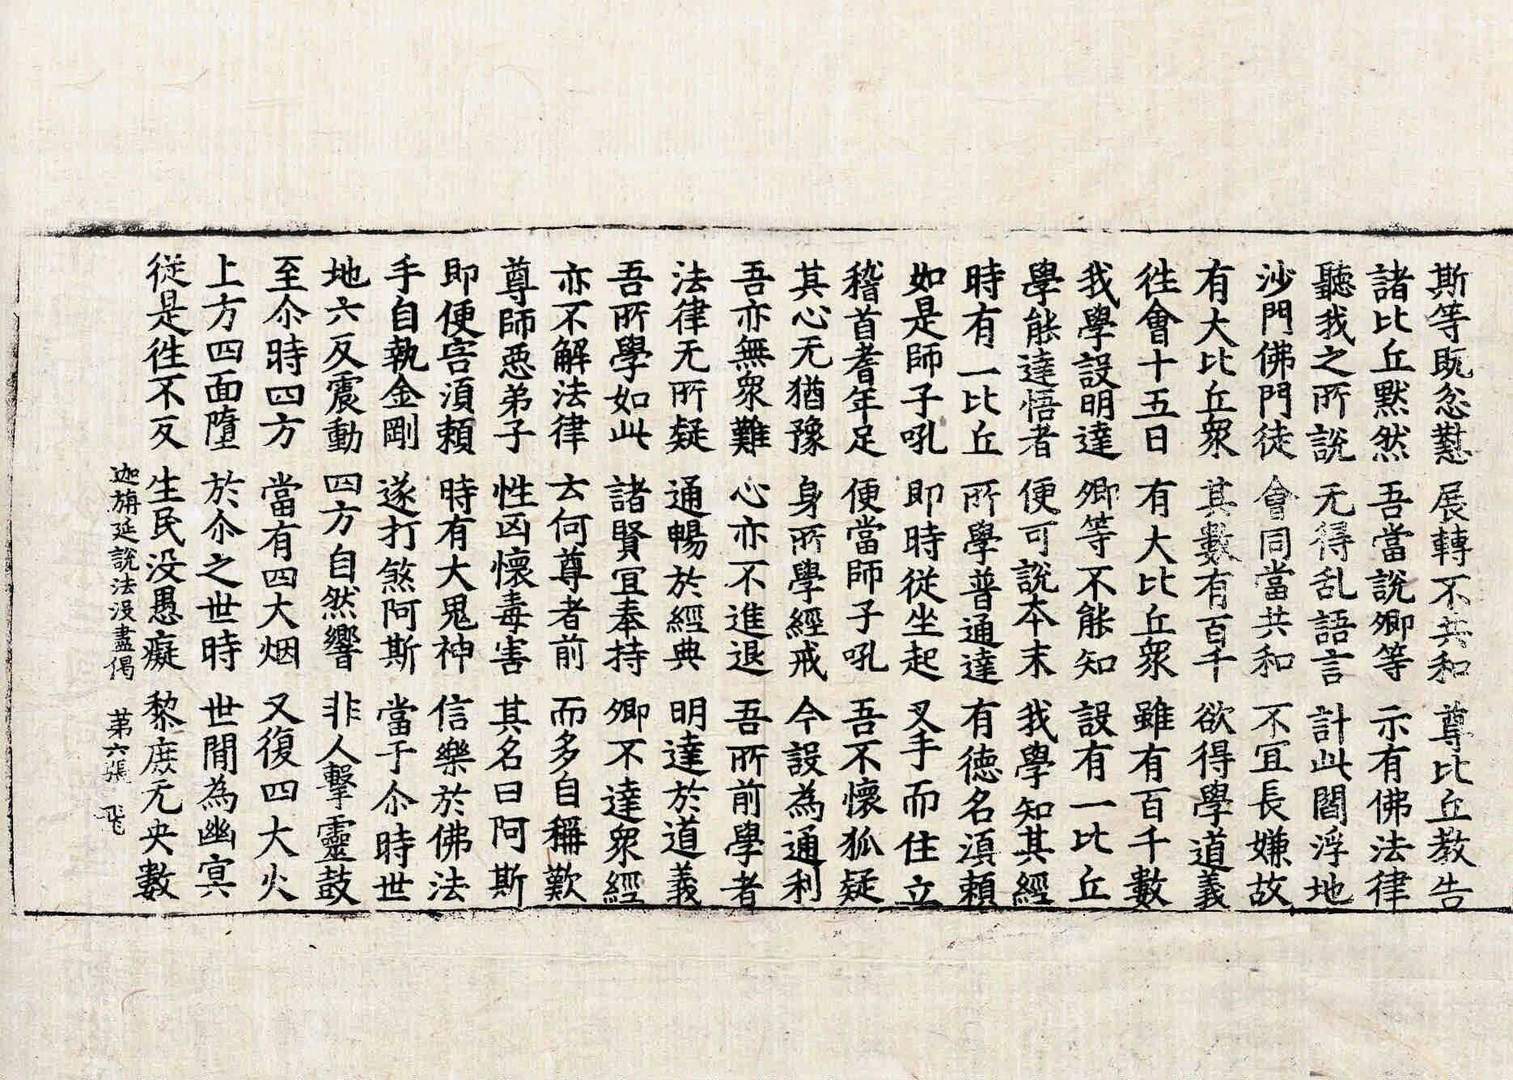 斯等既忿懟 展轉不共和 尊比丘教告
諸比丘默然 吾當說卿等 示有佛法律
聽我之所說 无得乱語言 計此閻浮地
沙門佛門徒 會同當共和 不冝長嫌故
有大比丘眾 其數有百千 欲得學道義
往會十五日 有大比丘眾 雖有百千數
我學設明達 卿等不能知 設有一比丘
學能達悟者 便可說本末 我學知其經
時有一比丘 所學普通達 有德名湏頼
如是師子吼 即時從坐起 叉手而住立
稽首耆年足 便當師子吼 吾不懷狐疑
其心无猶豫 身所學經戒 今設為通利
吾亦無眾難 心亦不進退 吾所前學者
法律无所疑 通暢於經典 明達於道義
吾所學如此 諸賢冝奉持 卿不達眾經
亦不解法律 云何尊者前 而多自稱歎
尊師惡弟子 性凶懷毒害 其名曰阿斯
即便害湏頼 時有大鬼神 信樂於佛法
手自執金剛 遂打煞阿斯 當于尒時世
地六反震動 四方自然響 非人擊靈鼓
至尒時四方 當有四大烟 又復四大火
上方四面墮 於尒之世時 世間為幽冥
從是往不反 生民没愚癡 黎庶无央數
迦旃延說法没盡偈 第六張 飛